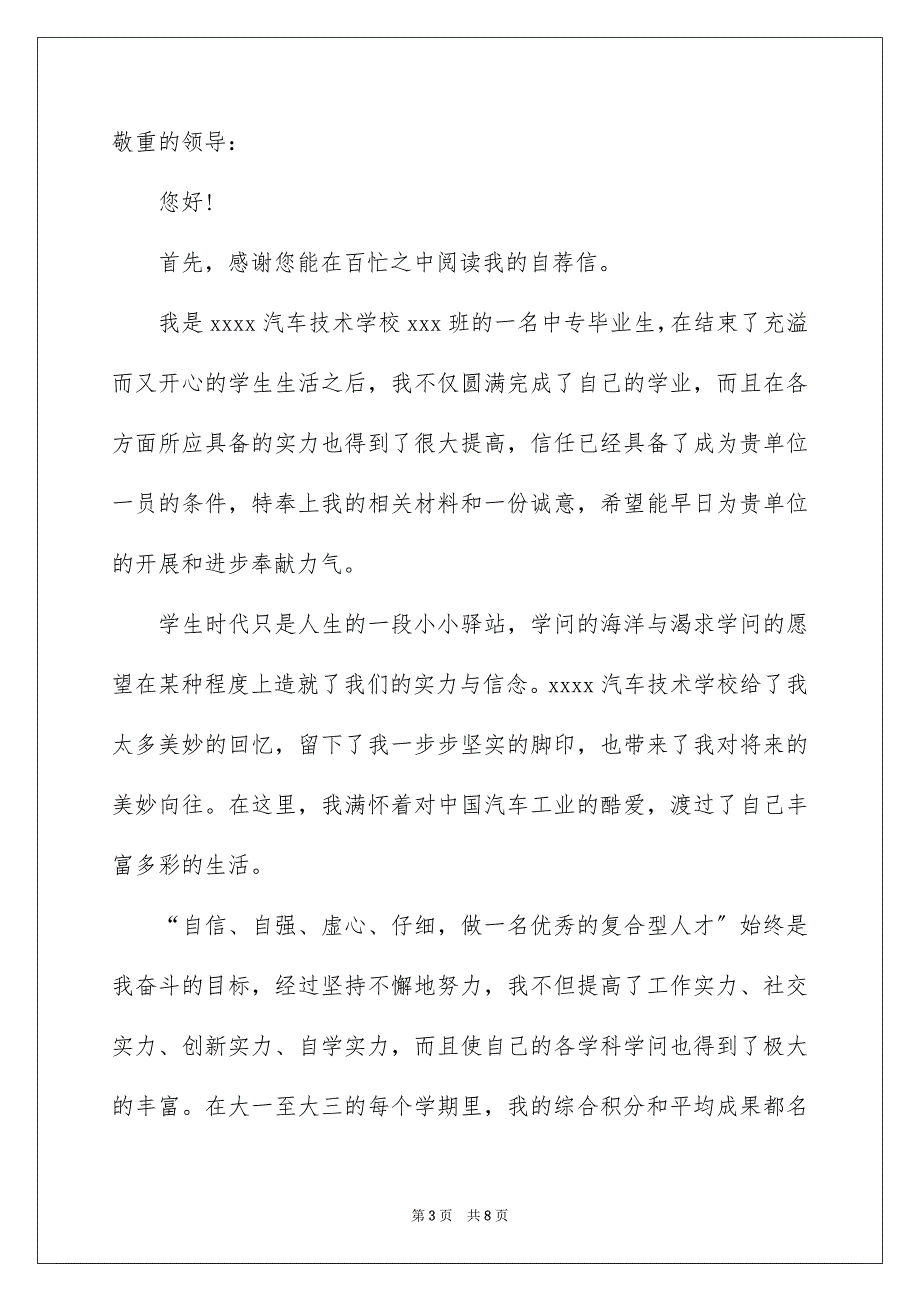 敬重的领导：
您好!
首先，感谢您能在百忙之中阅读我的自荐信。
我是 xxxx 汽车技术学校 xxx 班的一名中专毕业生，在结束了充溢
而又开心的学生生活之后，我不仅圆满完成了自己的学业，而且在各
方面所应具备的实力也得到了很大提高，信任已经具备了成为贵单位
一员的条件，特奉上我的相关材料和一份诚意，希望能早日为贵单位
的开展和进步奉献力气。
学生时代只是人生的一段小小驿站，学问的海洋与渴求学问的愿
望在某种程度上造就了我们的实力与信念。xxxx 汽车技术学校给了我
太多美妙的回忆，留下了我一步步坚实的脚印，也带来了我对将来的
美妙向往。在这里，我满怀着对中国汽车工业的酷爱，渡过了自己丰
富多彩的生活。
“自信、自强、虚心、仔细，做一名优秀的复合型人才〞始终是
我奋斗的目标，经过坚持不懈地努力，我不但提高了工作实力、社交
实力、创新实力、自学实力，而且使自己的各学科学问也得到了极大
的丰富。在大一至大三的每个学期里，我的综合积分和平均成果都名
第 3 页 共 8 页